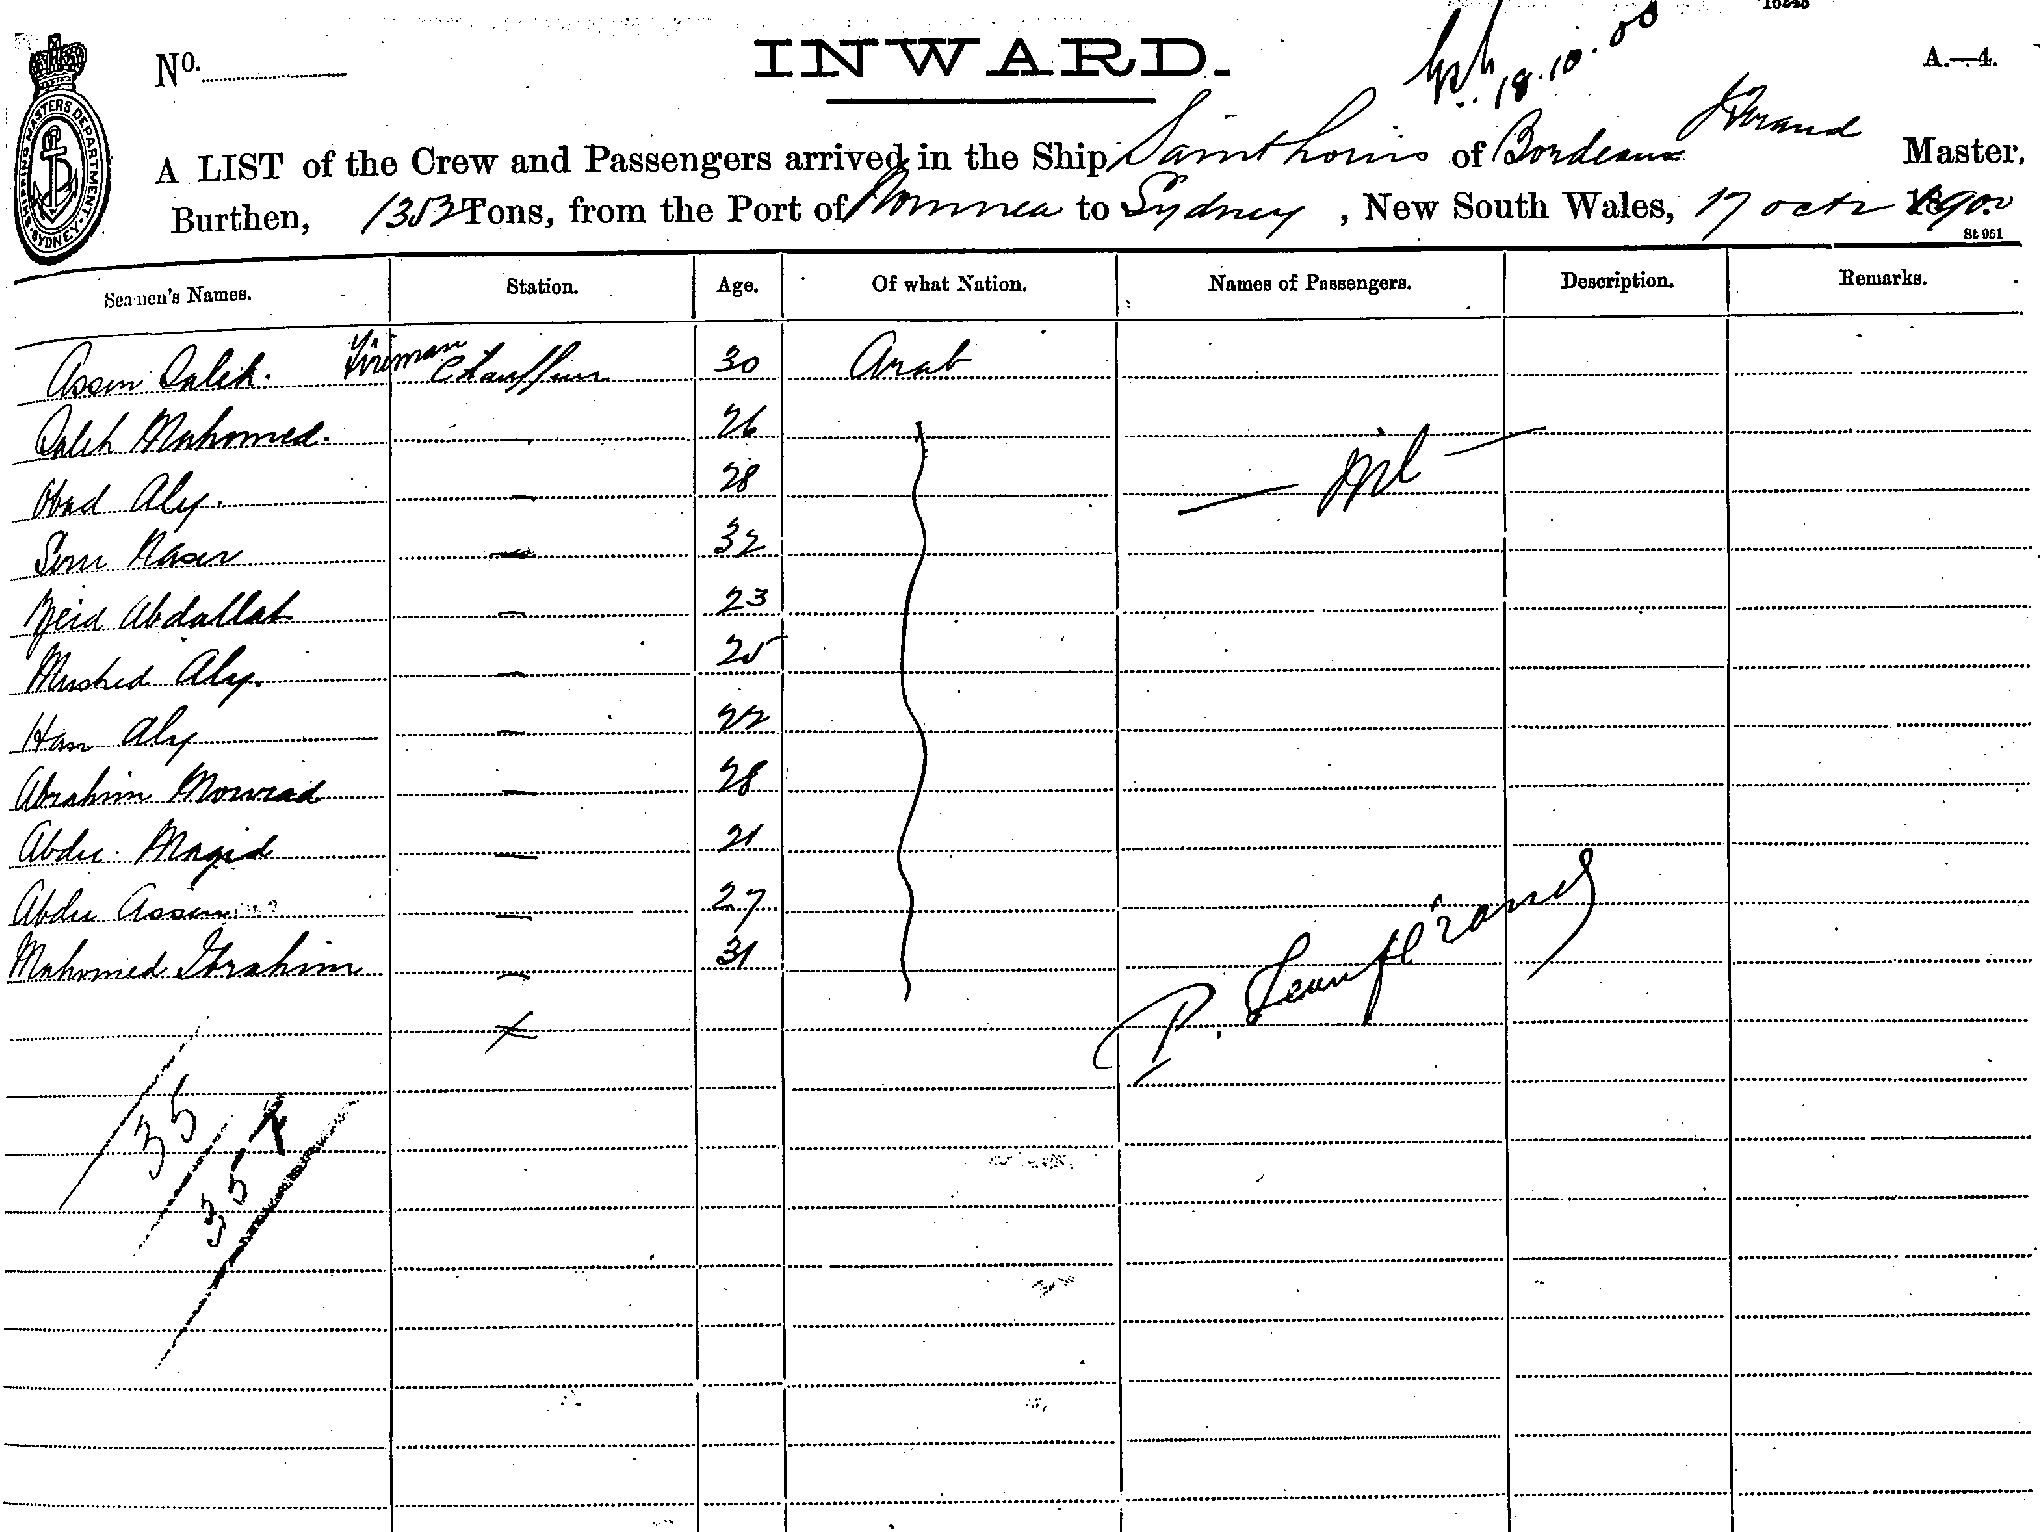 18.10.00
A.—4.
No.
INWARD.
A LIST of the Crew and Passengers arrived in the Ship Saint Louis of Bordeaux Master,
Burthen, 1353 Tons, from the Port of Noumea to Sydney, New South Wales, 17 octr 1900
St 951
SHIPPING MASTERS DEPARTMENT. SYDNEY.
Seamen's Names. Station. Age. Of what Nation. Names of Passengers. Description. Remarks.
Assen Saleh. Fireman Chauffeur 30 Arab
Saleh Mahomed. — 26
Obad Aly. — 28 — Nil —
Naser — 32
Zeid Abdallah — 23
Mushed Aly. — 25
Han Aly — 22
Abrahim Mourad — 28
Abdu. Magid — 21
Abdu Assen — 27
Mahomed Ibrahim — 31
P.
35
35